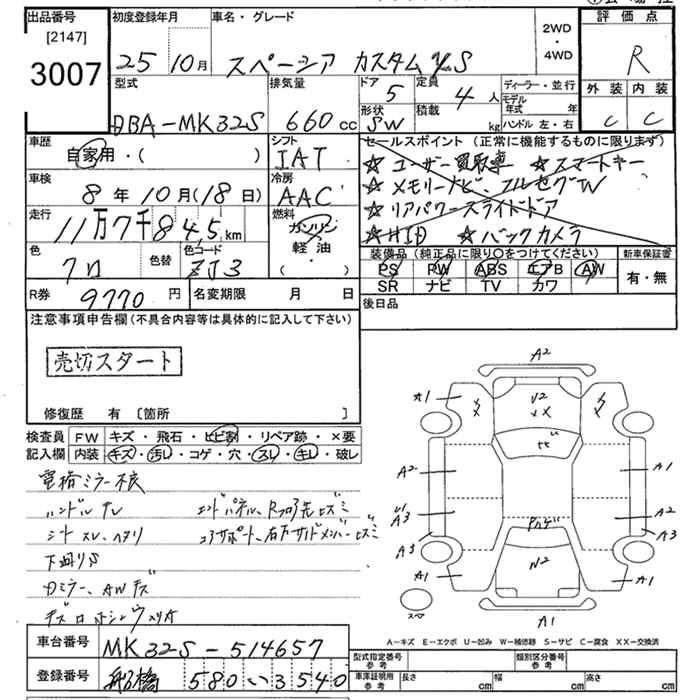 出品番号 初度登録年月 車名・グレード 評価点
[2147] 2WD・4WD
3007 25 10月 スペーシア カスタム XS R
型式 排気量 ドア 5 定員 4人 ディーラー・並行 外装 内装
DBA-MK32S 660cc 形状 SW 積載 kg モデル年式 年 ハンドル 左・右 C C
車歴 シフト セールスポイント (正常に機能するものに限ります)
自家用・( ) IAT ☆ユーザー買取車 ☆スマートキー
車検 冷房 ☆メモリーナビ、フルセグTV
8年10月(18日) AAC ☆リアパワースライドドア
走行 11万7千845km 燃料 ガソリン 軽油 ・( ) ☆HID ☆バックカメラ
色 クロ 色替 色コード ZJ3 装備品 (純正品に限り○をつけてください) 新車保証書
PS PW ABS エアB AW 有・無
SR ナビ TV カワ
R券 9770円 名変期限 月 日 後日品
注意事項申告欄 (不具合内容等は具体的に記入して下さい)
売切スタート
修復歴 有 [箇所 ]
検査員 FW キズ・飛石・ヒビ割・リペア跡・×要
記入欄 内装 キズ・汚レ・コゲ・穴・スレ・キレ・破レ
電格ミラー不良
ハンドル スレ エンドパネル、Rフロア先ヒズミ
シート スレ、ヘタリ コアサポート、右方サイドメンバーヒズミ
下廻りS
Dミラー、AWキズ
A2
A1 U2 XX
A2 A1
A3 A2
A3 A3
A1 W2 A1
スペア A1
A－キズ E－エクボ U－凹み W－補修跡 S－サビ C－腐食 XX－交換済
車台番号 MK32S-514657 型式指定番号 参考 類別区分番号 参考
登録番号 船橋 580 い 3540 車庫証明用 参考 長さ cm 幅 cm 高さ cm